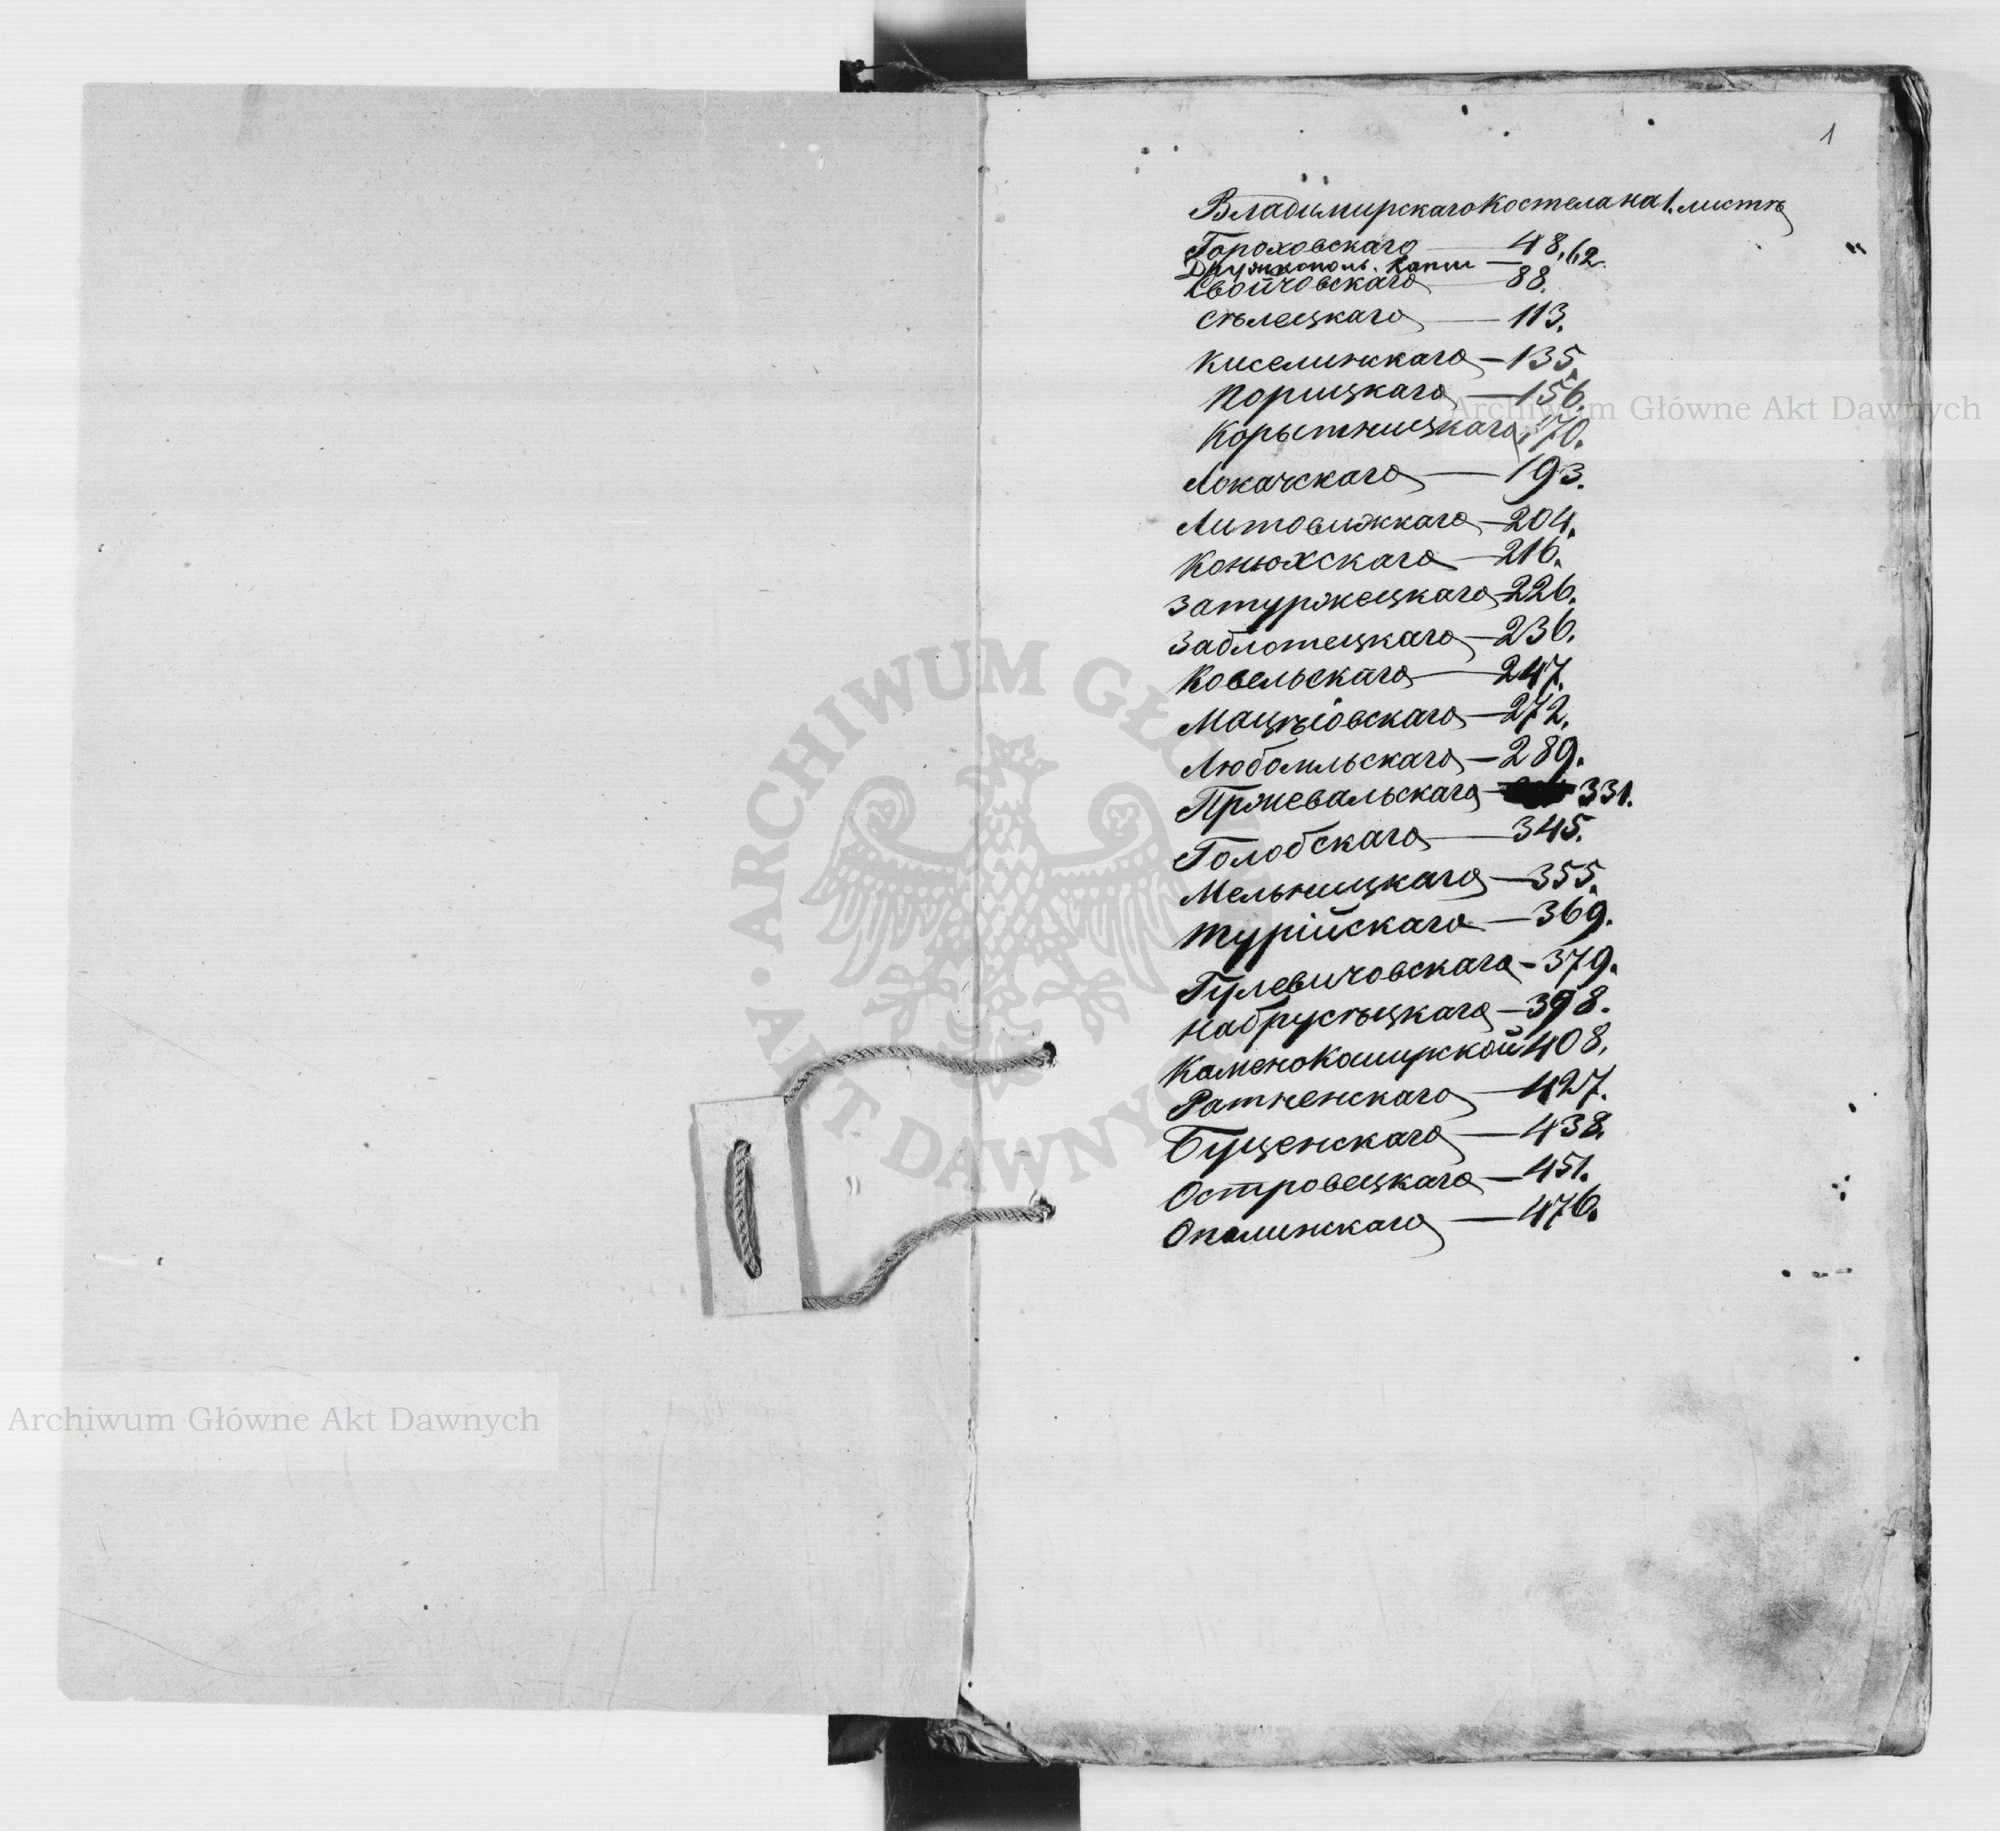 1
Владимирскаго Костела на 1. листѣ
Гороховскаго — 48,
Дружкополь. Капли — 62.
Свойчовскаго — 88.
Сѣлецкаго — 113.
Киселинскаго — 135.
Порицкаго — 156.
Корытницкаго, 170.
Локачскаго — 193.
Литовижскаго — 204.
Конюхскаго — 216.
Затуржецкаго — 226.
Заблотецкаго — 236.
Ковельскаго — 247.
Мацѣіовскаго — 272.
Любомльскаго — 289.
Пржевальскаго — 331.
Голобскаго — 345.
Мельницкаго — 355.
Турійскаго — 369.
Гулевичовскаго — 379.
Набрусѣцкаго — 398.
Камено Каширской 408.
Ратненскаго — 427.
Бущенскаго — 438.
Островецкаго — 451.
Опалинскаго — 476.
Archiwum Główne Akt Dawnych
ARCHIWUM GŁÓWNE AKT DAWNYCH
Archiwum Główne Akt Dawnych